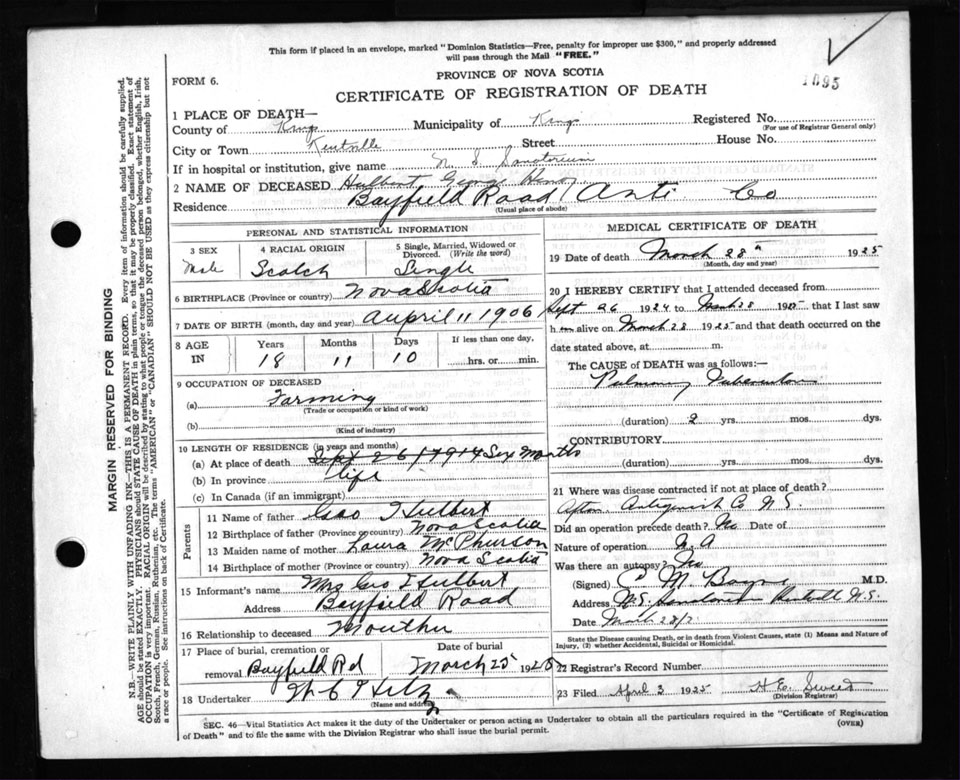 This form if placed in an envelope, marked "Dominion Statistics—Free, penalty for improper use $300," and properly addressed
will pass through the Mail "FREE."
1695
PROVINCE OF NOVA SCOTIA
FORM 6.
CERTIFICATE OF REGISTRATION OF DEATH
1 PLACE OF DEATH—
County of Kings Municipality of Kings Registered No.
(For use of Registrar General only)
City or Town Kentville Street House No.
If in hospital or institution, give name N. S. Sanatorium
2 NAME OF DECEASED Hulbert George Henry
Residence Bayfield Road Anti Co
(Usual place of abode)
PERSONAL AND STATISTICAL INFORMATION
3 SEX 4 RACIAL ORIGIN 5 Single, Married, Widowed or
Divorced. (Write the word)
Male Scotch Single
6 BIRTHPLACE (Province or country) Nova Scotia
7 DATE OF BIRTH (month, day and year) Aupril 11 1906
8 AGE IN Years Months Days If less than one day,
18 11 10 hrs. or min.
9 OCCUPATION OF DECEASED
(a) Farming
(Trade or occupation or kind of work)
(b)
(Kind of industry)
10 LENGTH OF RESIDENCE (in years and months)
(a) At place of death Sept 26 1914 Six Months
(b) In province life
(c) In Canada (if an immigrant)
Parents
11 Name of father Geo Hulbert
12 Birthplace of father (Province or country) Nova Scotia
13 Maiden name of mother Laura McPhurson
14 Birthplace of mother (Province or country) Nova Scotia
15 Informant's name Mrs Geo Hulbert
Address Bayfield Road
16 Relationship to deceased Mouther
17 Place of burial, cremation or Date of burial
removal Bayfield Rd March 25 1925
18 Undertaker
(Name and address)
MEDICAL CERTIFICATE OF DEATH
19 Date of death March 28" 1925
(Month, day and year)
20 I HEREBY CERTIFY that I attended deceased from
Sept 26 1924 to March 28 1925 that I last saw
him alive on March 28 1925 and that death occurred on the
date stated above, at m.
The CAUSE OF DEATH was as follows:—
Pulmonary Tuberculosis
(duration) 2 yrs. mos. dys.
CONTRIBUTORY.
(duration) yrs. mos. dys.
21 Where was disease contracted if not at place of death?
Afton Antigonish Co N.S.
Did an operation precede death? No Date of
Nature of operation N A
Was there an autopsy? No
(Signed) M M.D.
Address N.S. Sanatorium Kentville N.S.
Date March 28/
State the Disease causing Death, or in death from Violent Causes, state (1) Means and Nature of
Injury, (2) whether Accidental, Suicidal or Homicidal.
22 Registrar's Record Number
23 Filed April 3 1925 H E
(Division Registrar)
SEC. 46—Vital Statistics Act makes it the duty of the Undertaker or person acting as Undertaker to obtain all the particulars required in the "Certificate of Registration
of Death" and to file the same with the Division Registrar who shall issue the burial permit. (OVER)
MARGIN RESERVED FOR BINDING
N.B.—WRITE PLAINLY WITH UNFADING INK—THIS IS A PERMANENT RECORD. Every item of information should be carefully supplied.
AGE should be stated EXACTLY. PHYSICIANS should STATE CAUSE OF DEATH in plain terms, so that it may be properly classified. Exact statement of
OCCUPATION is very important. RACIAL ORIGIN will be described by stating to what people or tongue the deceased person belonged, whether English, Irish,
Scotch, French, German, Russian, Ruthenian, etc. The terms "AMERICAN" or "CANADIAN" SHOULD NOT BE USED as they express citizenship but not
a race or people. See instructions on back of Certificate.